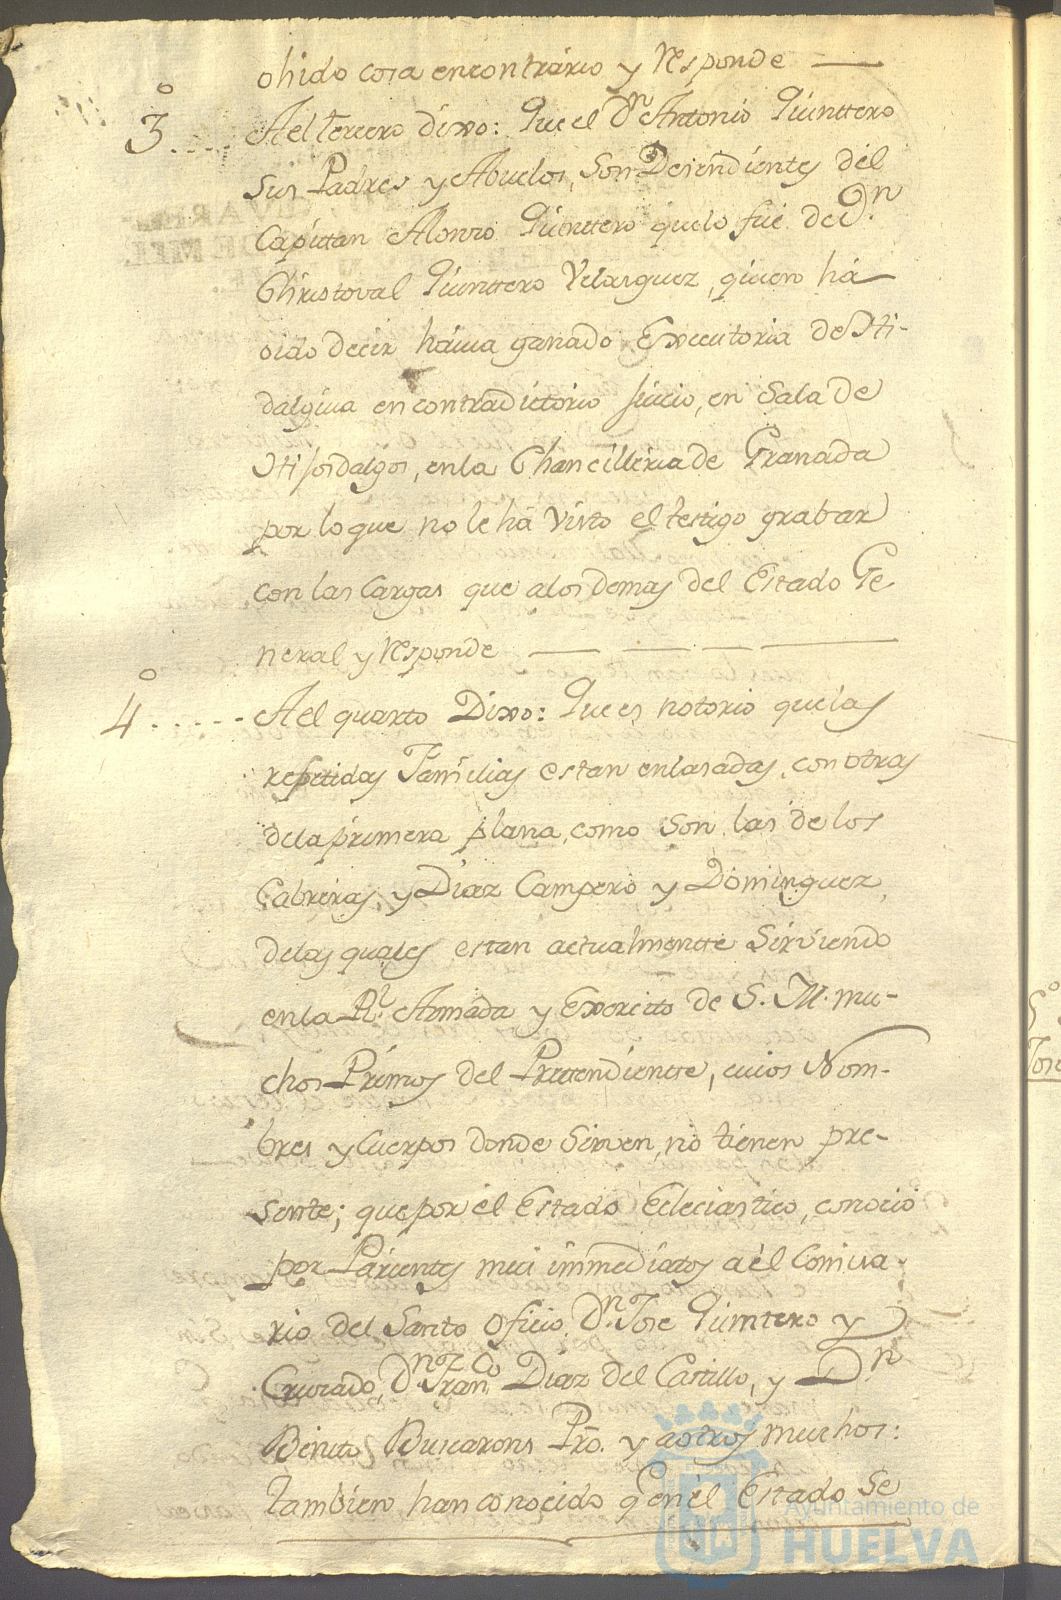 ohido cosa encontrario y responde
3º.... Ael tercero dixo: Que el Dn Antonio Quinttero
sus Padres y Abuelos, son Desendientes del
Capitan Alonzo Quinttero quelo fue de Dn.
Christoval Quinttero Velasquez, quien há
oido decir havia ganado Executoria de Hi-
dalguia en contradictorio juicio, en Sala de
Hijosdalgos, enla Chancilleria de Granada
por loque no le há visto el testigo grabar
con las cargas que alos demas del Estado Ge
neral y responde
4º..... Ael quarto Dixo: Que es notorio quelas
repetidas Familias estan enlasadas, con otras
dela primera plana, como son las de los
Cabreras, y Diaz Campero y Dominguez,
delos quales estan actualmentte Sirviendo
enla Rl. Armada y Exercito de S. M. mu-
chos Primos del Prettendientte, cuios Nom-
bres y Cuerpos donde Sirven, no tienen pre-
sente; que por el Estado Eclesiastico, conocio
por Parientes mui immediatos a él Comisa
rio del Santo Oficio, Dn. Jose Quinttero y
Cruzado, Dn. Franco Diaz del Castillo, y Dn
Benito Buscarons Pro. y aotros muchos:
tambien han conocido q en el Estado Se
Ayuntamiento de
HUELVA